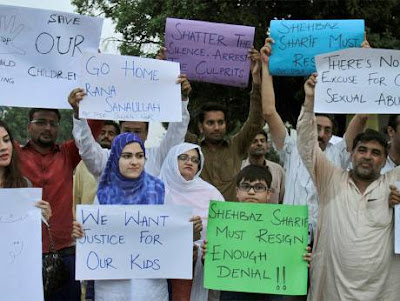 SAVE
OUR
CHILDREN
SHATTER THE
SILENCE. ARREST
THE CULPRITS
SHEHBAZ
SHARIF MUST
RESIGN
THERE'S NO
EXCUSE FOR
SEXUAL
GO HOME
RANA
SANAULLAH
WE WANT
JUSTICE FOR
OUR KIDS
SHEHBAZ SHARIF
MUST RESIGN
ENOUGH
DENIAL!!